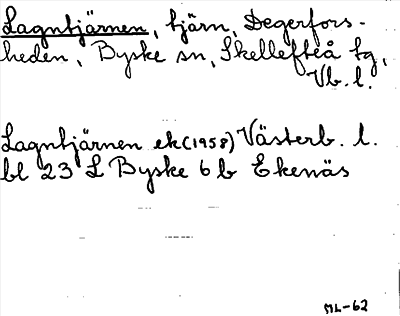 Lagntjärnen, tjärn, Degerfors-
heden, Byske sn, Skellefteå tg,
Vb. l.
Lagntjärnen ek (1958) Västerb. l.
bl 23 L Byske 6 b Ekenäs
ML-62